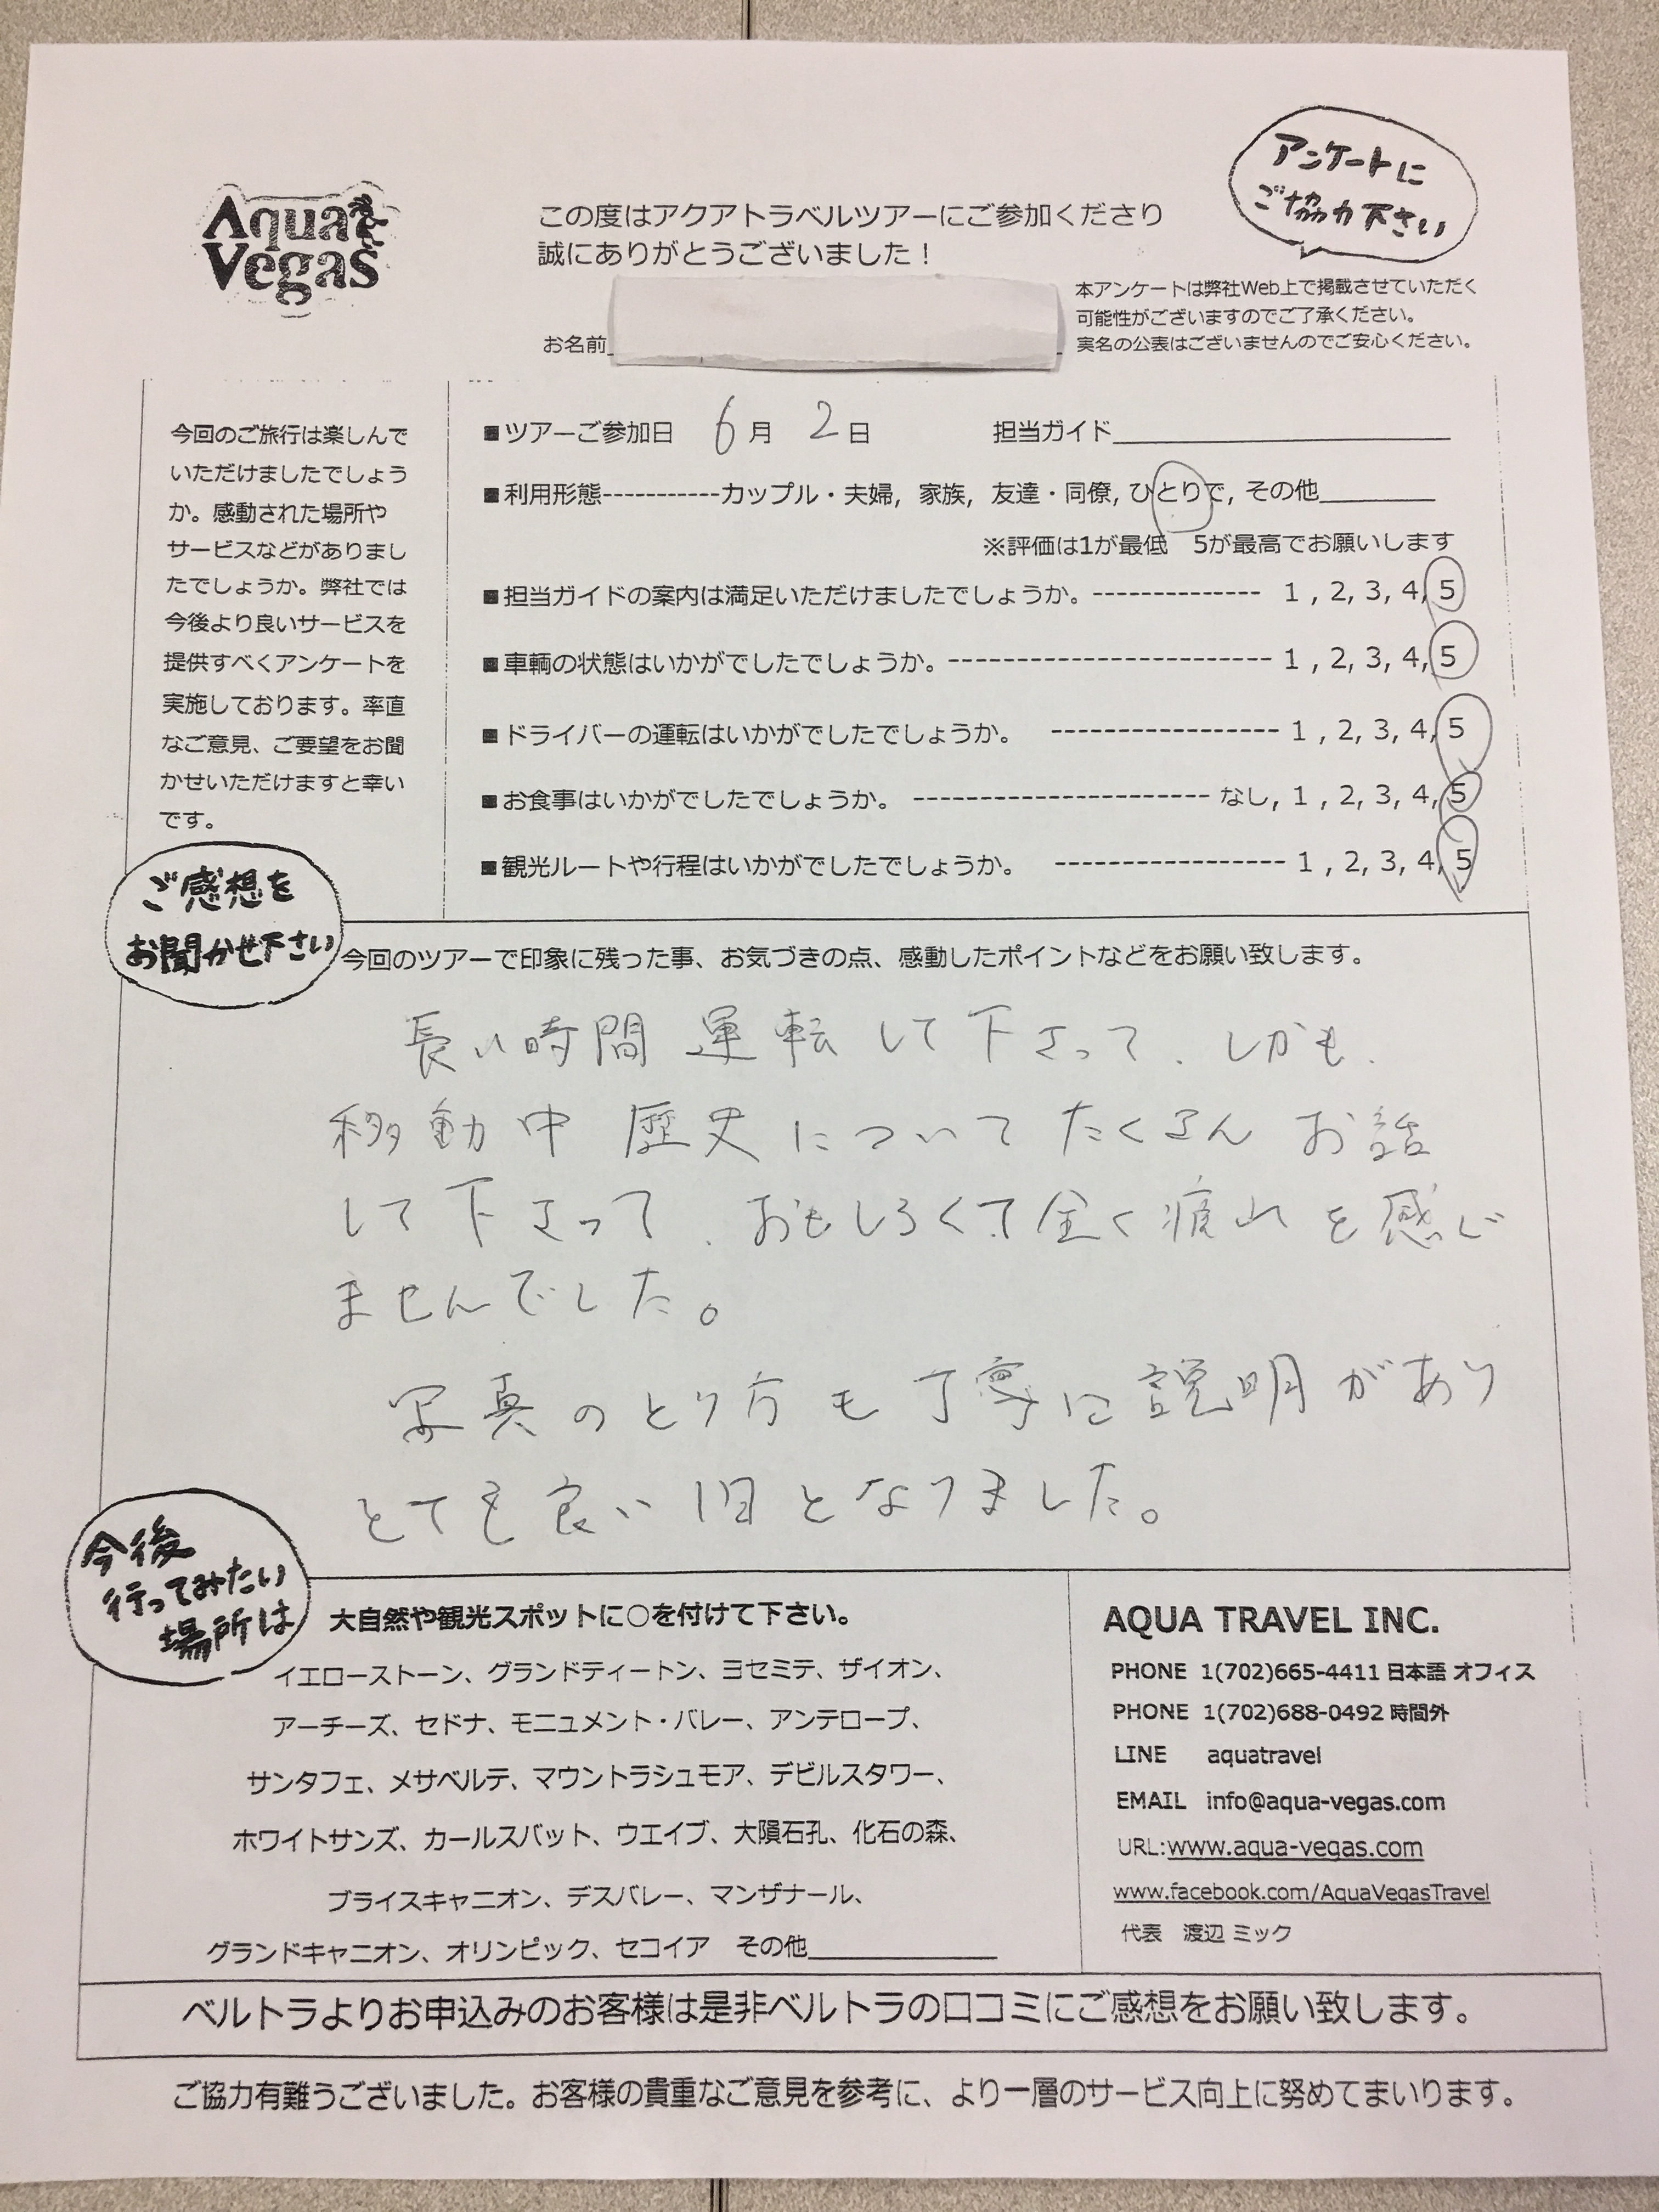 Aqua
Vegas
この度はアクアトラベルツアーにご参加くださり
誠にありがとうございました！
アンケートに
ご協力下さい
お名前
本アンケートは弊社Web上で掲載させていただく
可能性がございますのでご了承ください。
実名の公表はございませんのでご安心ください。
今回のご旅行は楽しんで
いただけましたでしょう
か。感動された場所や
サービスなどがありまし
たでしょうか。弊社では
今後より良いサービスを
提供すべくアンケートを
実施しております。率直
なご意見、ご要望をお聞
かせいただけますと幸い
です。
■ツアーご参加日 6月 2日 担当ガイド
■利用形態-----------カップル・夫婦, 家族, 友達・同僚, ひとりで, その他
※評価は1が最低 5が最高でお願いします
■担当ガイドの案内は満足いただけましたでしょうか。-------------- 1 , 2, 3, 4, 5
■車輌の状態はいかがでしたでしょうか。--------------------------- 1 , 2, 3, 4, 5
■ドライバーの運転はいかがでしたでしょうか。 ------------------- 1 , 2, 3, 4, 5
■お食事はいかがでしたでしょうか。 ------------------------- なし, 1 , 2, 3, 4, 5
■観光ルートや行程はいかがでしたでしょうか。 ------------------- 1 , 2, 3, 4, 5
ご感想を
お聞かせ下さい
今回のツアーで印象に残った事、お気づきの点、感動したポイントなどをお願い致します。
長い時間運転して下さって、しかも、
移動中歴史についてたくさんお話
して下さって、おもしろくて全く疲れを感じ
ませんでした。
写真のとり方も丁寧に説明があり
とても良い1日となりました。
今後
行ってみたい
場所は
大自然や観光スポットに○を付けて下さい。
イエローストーン、グランドティートン、ヨセミテ、ザイオン、
アーチーズ、セドナ、モニュメント・バレー、アンテロープ、
サンタフェ、メサベルテ、マウントラシュモア、デビルスタワー、
ホワイトサンズ、カールスバット、ウエイブ、大隕石孔、化石の森、
ブライスキャニオン、デスバレー、マンザナール、
グランドキャニオン、オリンピック、セコイア その他
AQUA TRAVEL INC.
PHONE 1(702)665-4411 日本語 オフィス
PHONE 1(702)688-0492 時間外
LINE aquatravel
EMAIL info@aqua-vegas.com
URL:www.aqua-vegas.com
www.facebook.com/AquaVegasTravel
代表 渡辺 ミック
ベルトラよりお申込みのお客様は是非ベルトラの口コミにご感想をお願い致します。
ご協力有難うございました。お客様の貴重なご意見を参考に、より一層のサービス向上に努めてまいります。